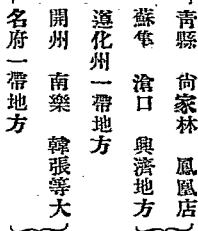 青縣 尙家林 鳳凰店
蘇隼 滄口 興濟地方
遵化州一帶地方
開州 南樂 韓張等大
名府一帶地方